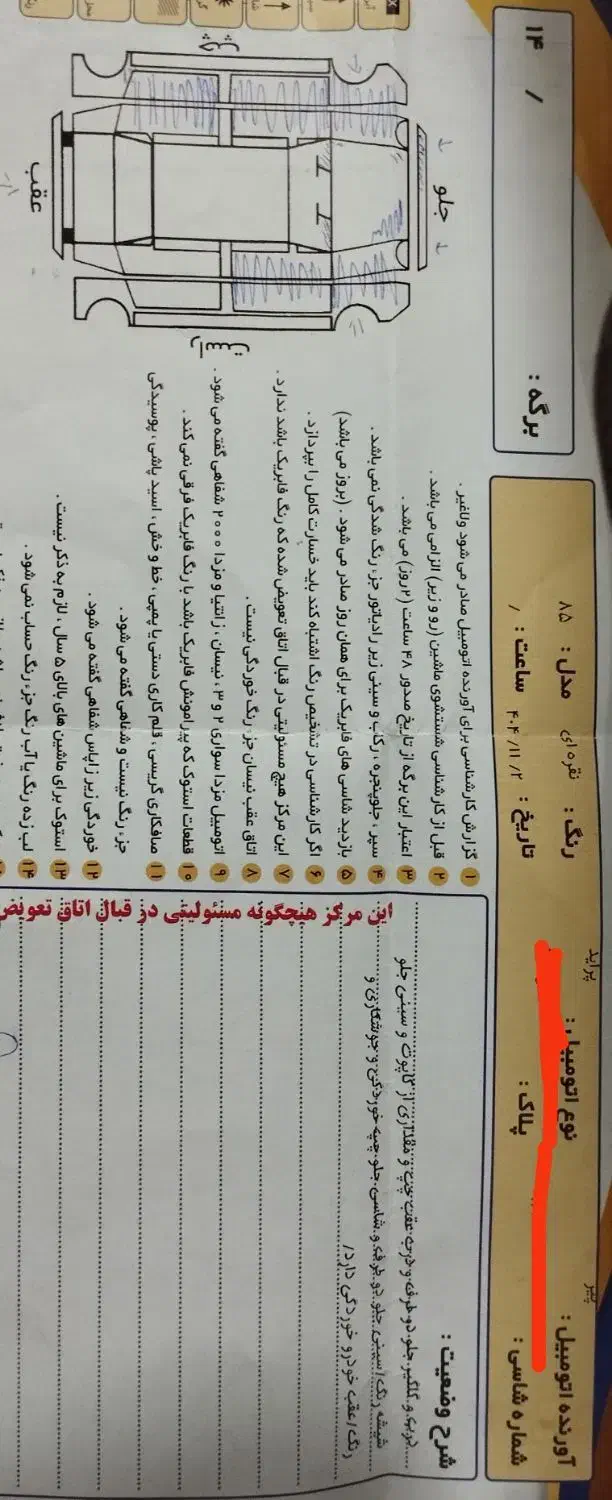 ۱۴ /
برگه :
جلو
عقب
راست
چپ
آورنده اتومبیل :
نوع اتومبیل :
پراید
رنگ : نقره ای
مدل : ۸۵
شماره شاسی :
پلاک :
تاریخ : ۴۰۴/۱۱/۲
ساعت : /
۱ گزارش کارشناسی برای آورنده اتومبیل صادر می شود ولاغیر .
۲ قبل از کارشناسی شستشوی ماشین (رو و زیر) الزامی می باشد .
۳ اعتبار این برگه از تاریخ صدور ۴۸ ساعت (۲روز) می باشد .
۴ سپر ، جلوپنجره ، رکاب و سینی زیر رادیاتور جزء رنگ شدگی نمی باشد .
۵ بازدید شاسی های فابریک برای همان روز صادر می شود . (بروز می باشد)
۶ اگر کارشناسی در تشخیص رنگ اشتباه کند باید خسارت کامل را بپردازد .
۷ این مرکز هیچ مسئولیتی در قبال اتاق تعویض شده که رنگ فابریک باشد ندارد .
۸ اتاق عقب نیسان جزء رنگ خوردگی نیست .
۹ اتومبیل مزدا سواری ۲ و ۳ ، نیسان ، زانتیا و مزدا ۲۰۰۰ شفاهی گفته می شود .
۱۰ قطعات استوک که پیرامونش فابریک باشد با رنگ فابریک فرقی نمی کند .
۱۱ صافکاری گریسی ، قلم کاری دستی یا پمپی ، خط و خش ، اسید پاشی ، پوسیدگی
جزء رنگ نیست و شفاهی گفته می شود .
۱۲ خوردگی زیر زاپاس شفاهی گفته می شود .
۱۳ استوک برای ماشین های بالای ۵ سال ، لازم به ذکر نیست .
۱۴ لب زده رنگ یا آب رنگ جزء رنگ حساب نمی شود .
شرح وضعیت :
درب و گلگیر جلو دو طرف و درب عقب چپ و مقداری از کاپوت و سینی جلو
شیشه رنگ / سینی جلو دو طرف و شاسی جلو چپ خوردگی و جوشکاری و
رنگ / عقب خودرو خوردگی دارد /
این مرکز هیچگونه مسئولیتی در قبال اتاق تعویض